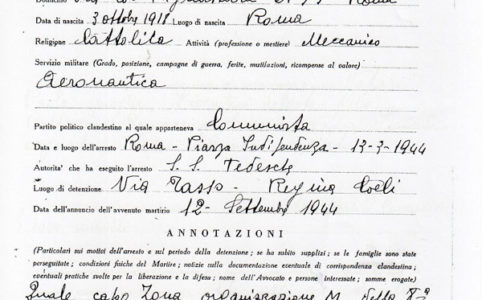 Data di nascita 3 ottobre 1918 Luogo di nascita Roma
Religione Cattolica Attività (professione o mestiere) Meccanico
Servizio militare (Grado, posizione, campagne di guerra, ferite, mutilazioni, ricompense al valore)
Aeronautica
Partito politico clandestino al quale apparteneva Comunista
Data e luogo dell'arresto Roma - Piazza Indipendenza - 13-3-1944
Autorita' che ha eseguito l'arresto S. S. Tedesche
Luogo di detenzione Via Tasso - Regina Coeli
Data dell'annuncio dell'avvenuto martirio 12 - Settembre 1944
ANNOTAZIONI
(Particolari sui motivi dell'arresto e sul periodo della detenzione; se ha subito supplizi; se le famiglie sono state
perseguitate; condizioni fisiche del Martire; notizie sulla documentazione eventuale di corrispondenza clandestina;
eventuali pratiche svolte per la liberazione e la difesa; nome dell'Avvocato o persone interessate; somme erogate)
Quale capo Zona organizzazione M. della 8ª